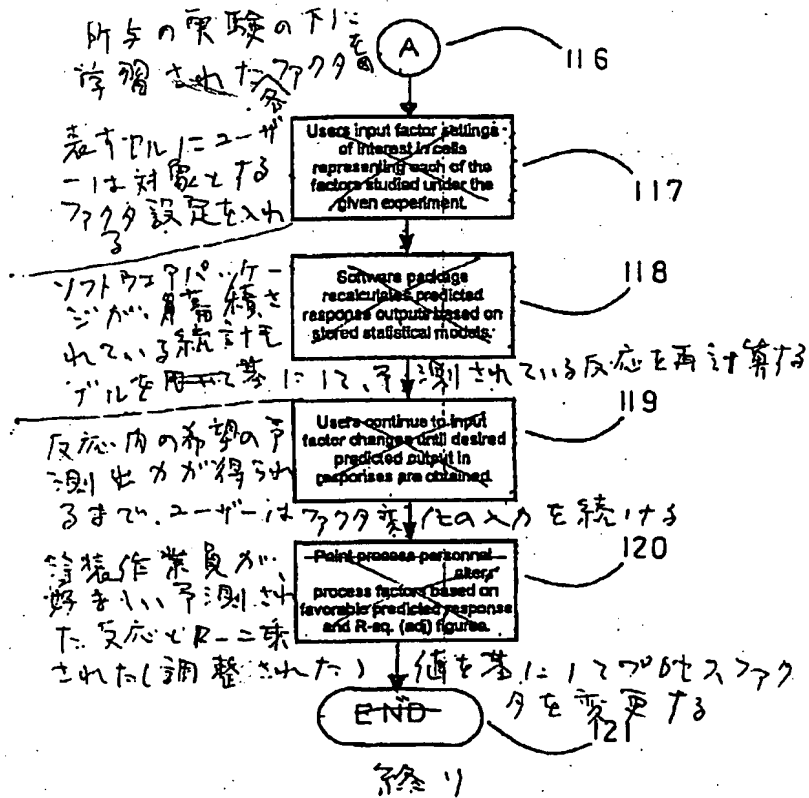 所与の実験の下に
学習されたファクタを
各
A
116
表すセルにユーザ
ーは対象とする
ファクタ設定を入れ
る
Users input factor settings
of interest in cells
representing each of the
factors studied under the
given experiment.
117
ソフトウェアパッケー
ジが 蓄積さ
れている統計モ
デルを 基にして、予測されている反応を再計算する
Software package
recalculates predicted
response outputs based on
stored statistical models.
118
反応内の希望の予
測出力が得られ
るまで、ユーザーはファクタ変化の入力を続ける
Users continue to input
factor changes until desired
predicted output in
responses are obtained.
119
塗装作業員が
好ましい予測され
た反応とR-二乗
された(調整された) 値を基にしてプロセスファク
タを変更する
Paint process personnel
alter
process factors based on
favorable predicted response
and R-sq. (adj) figures.
120
END
121
終り